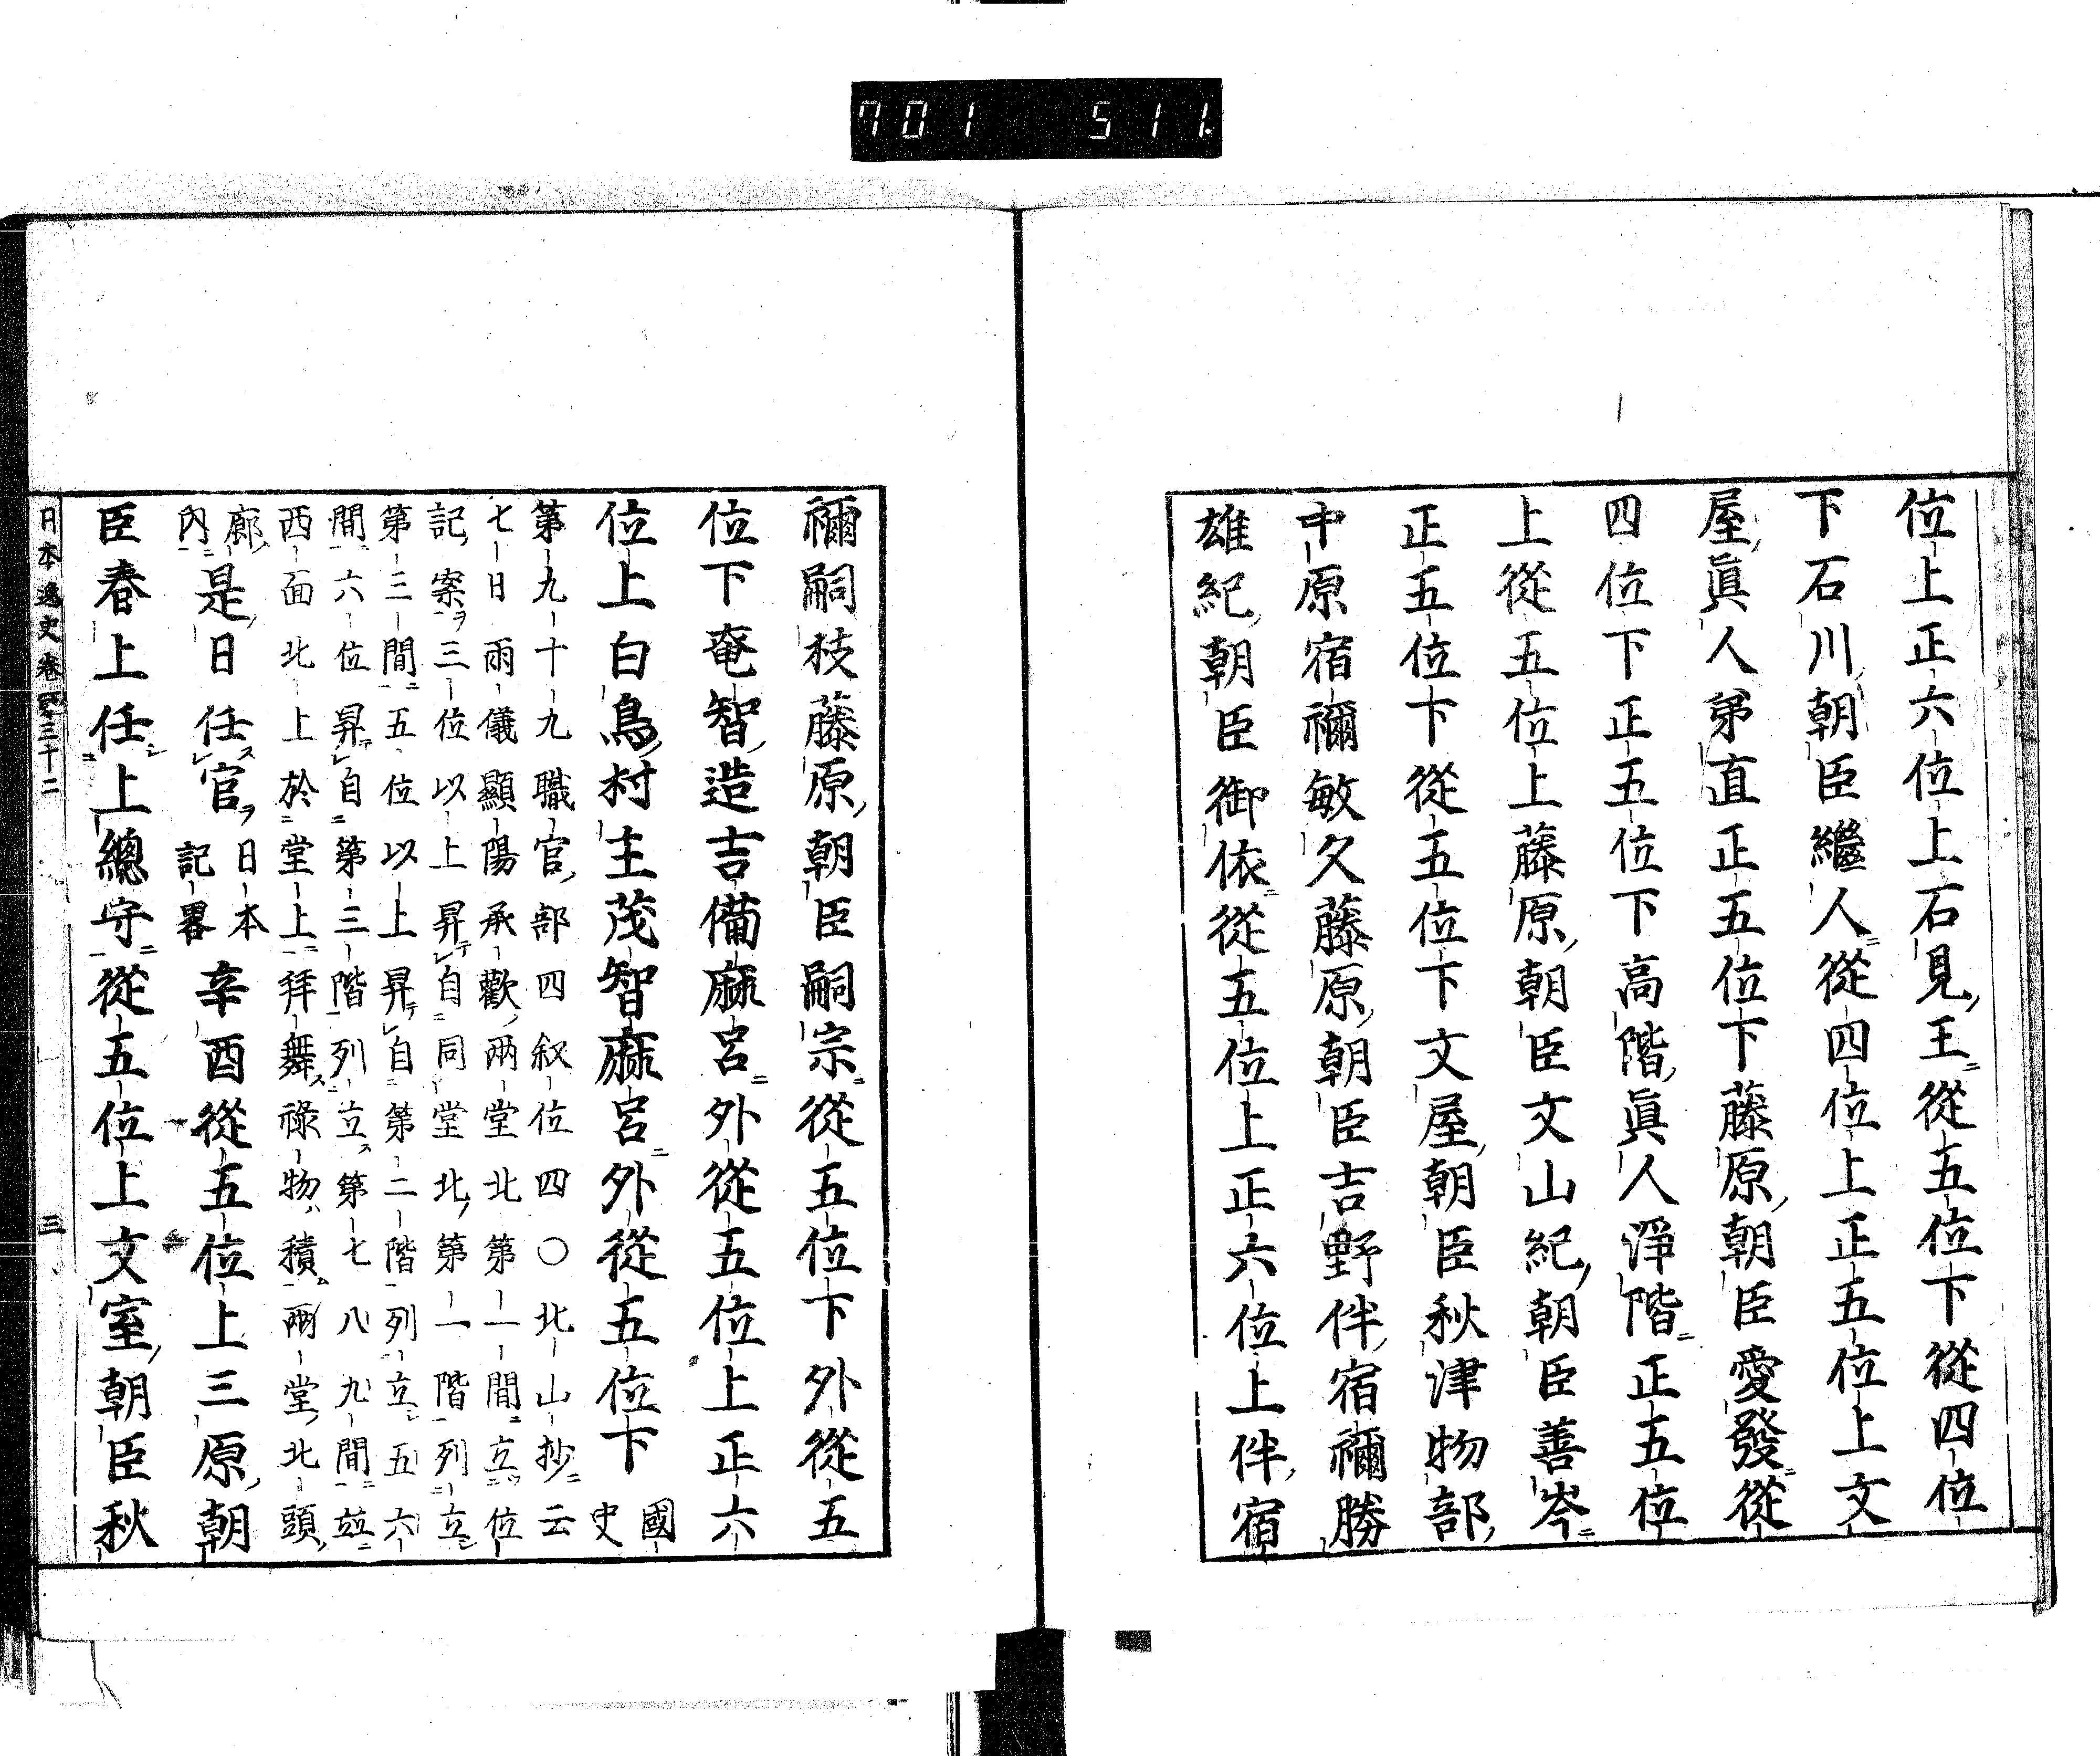 701 511
位上正六位上石見王從五位下從四位
下石川朝臣繼人從四位上正五位上文
屋眞人弟直正五位下藤原朝臣愛發從
四位下正五位下高階眞人淨階正五位
上從五位上藤原朝臣文山紀朝臣善岑
正五位下從五位下文屋朝臣秋津物部
中原宿禰敏久藤原朝臣吉野伴宿禰勝
雄紀朝臣御依從五位上正六位上伴宿
禰嗣枝藤原朝臣嗣宗從五位下外從五
位下奄智造吉備麻呂外從五位上正六
位上白鳥村主茂智麻呂外從五位下國史
第九十九職官部四叙位四〇北山抄云
七日雨儀顯陽承歡兩堂北第一間立位
記案三位以上昇自同堂北第一階列立
第三間五位以上昇自第二階列立五六
間六位昇自第三階列立第七八九間竝
西面北上於堂上拜舞祿物積兩堂北頭
廊內是日任官日本記畧辛酉從五位上三原朝
臣春上任上總守從五位上文室朝臣秋
日本逸史卷三十二
三